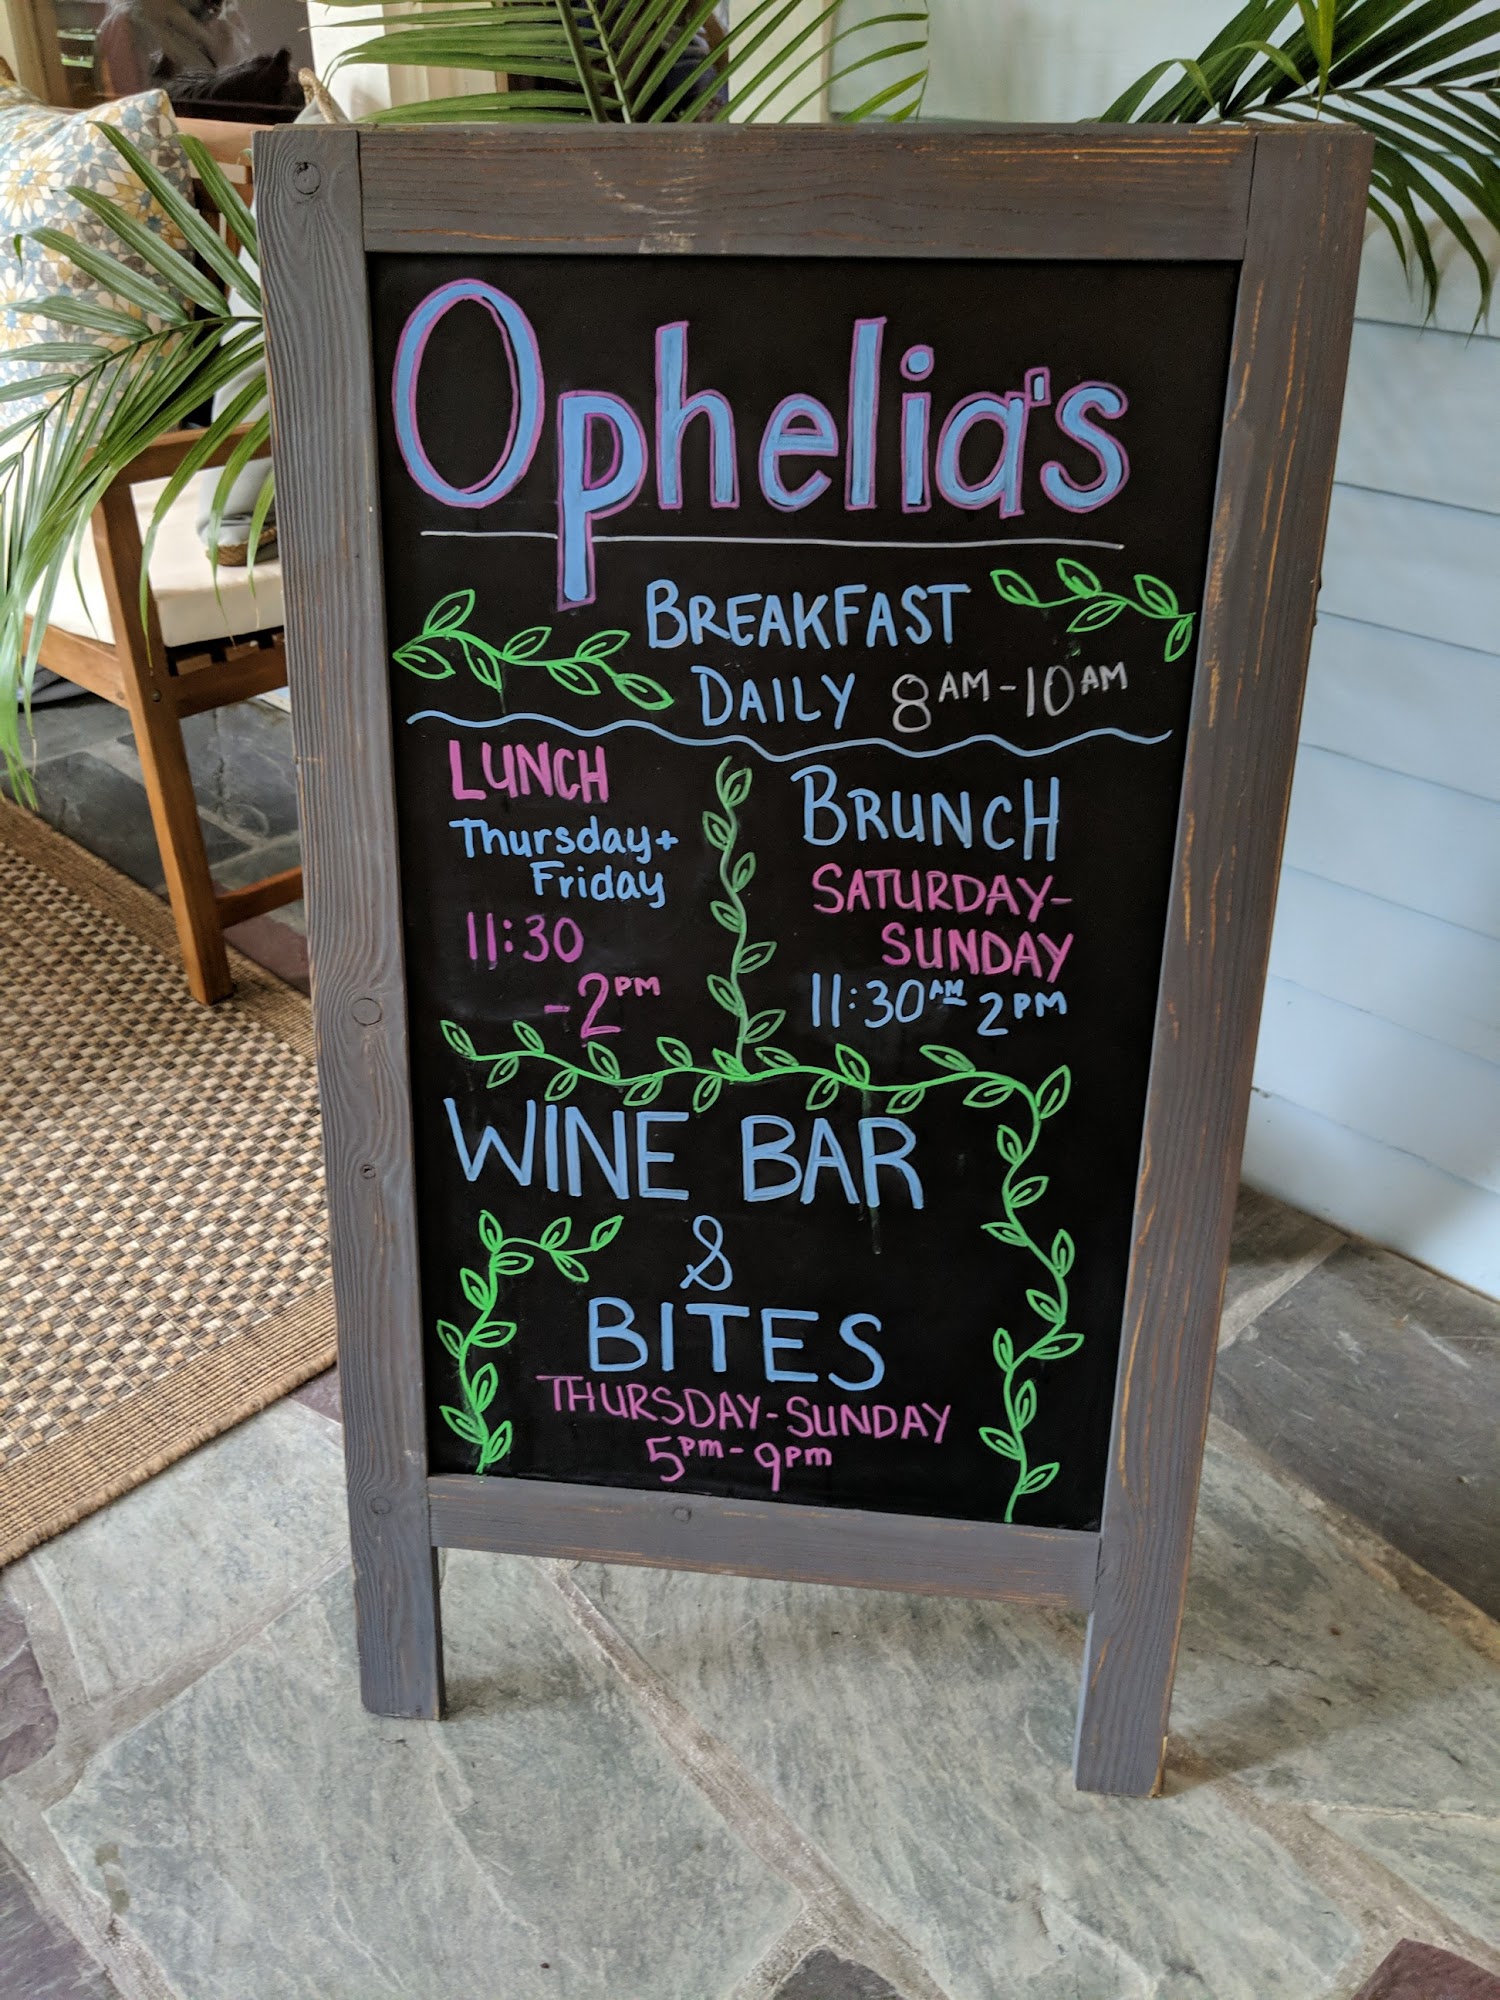 Ophelia's
BREAKFAST
DAILY 8AM-10AM
LUNCH
Thursday+
Friday
11:30
-2PM
BRUNCH
SATURDAY-
SUNDAY
11:30AM 2PM
WINE BAR
&
BITES
THURSDAY-SUNDAY
5pm-9pm